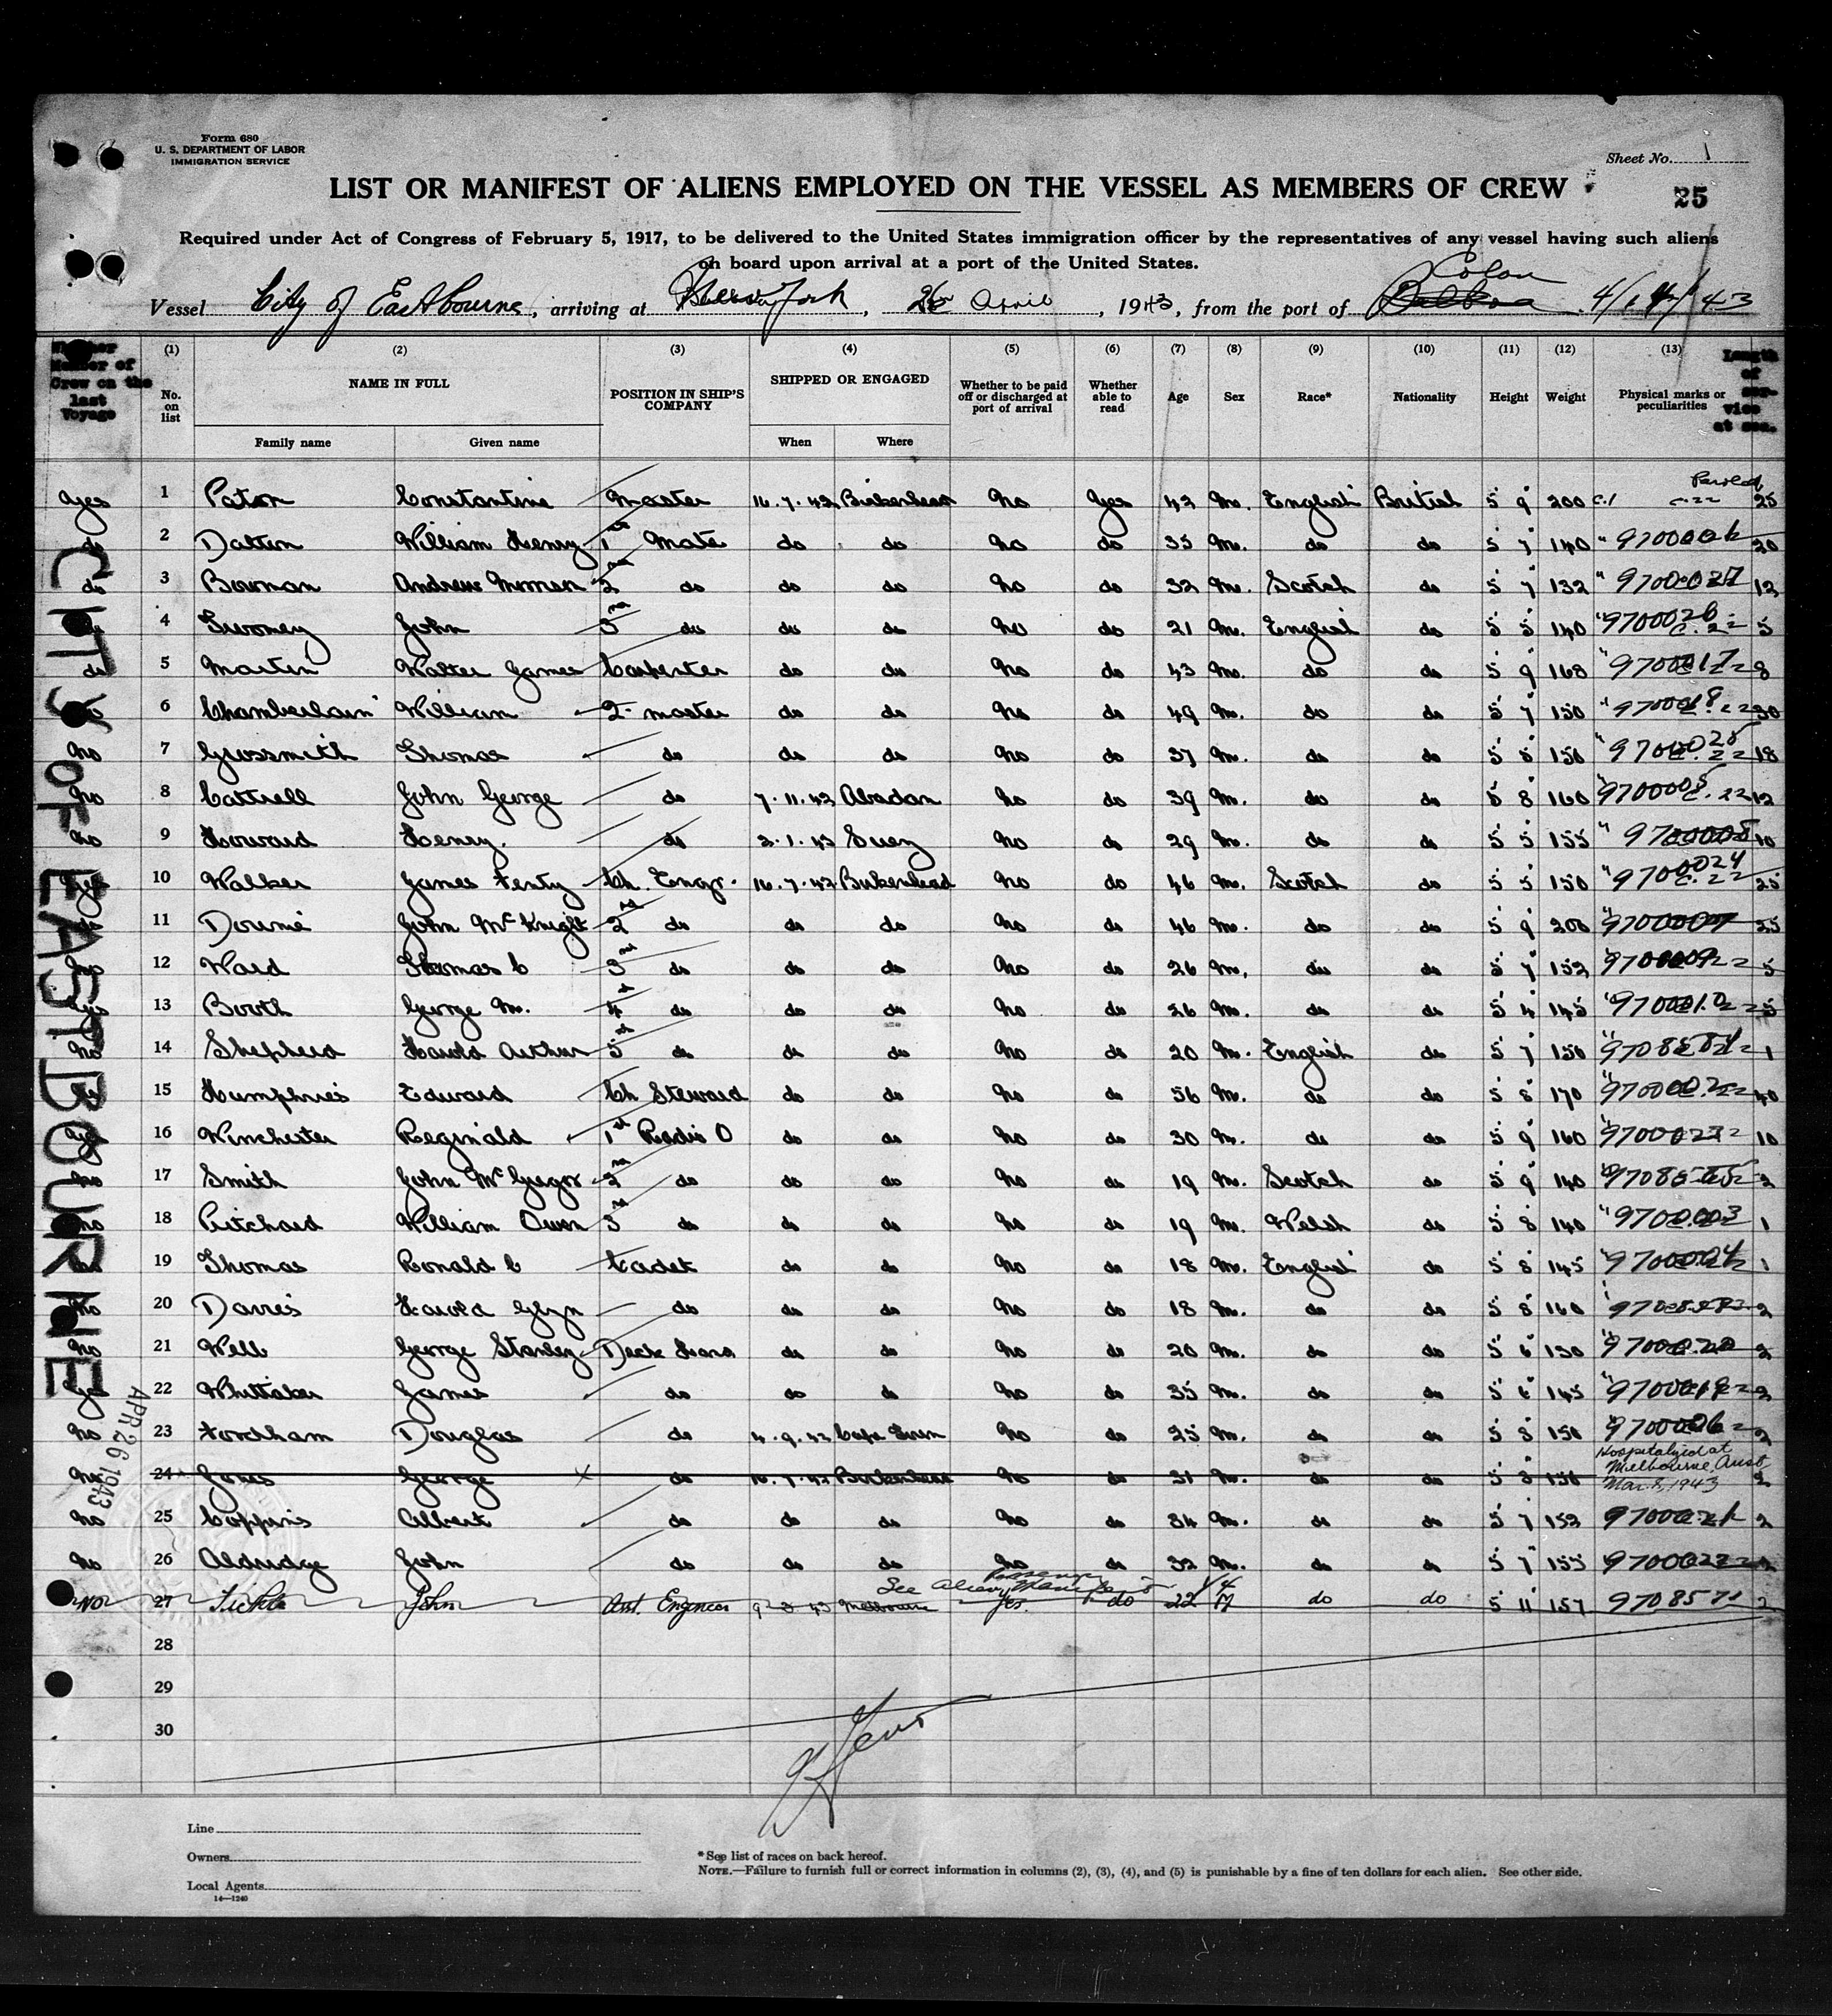 Form 680
U. S. DEPARTMENT OF LABOR
IMMIGRATION SERVICE
Sheet No. 1
LIST OR MANIFEST OF ALIENS EMPLOYED ON THE VESSEL AS MEMBERS OF CREW
25
Required under Act of Congress of February 5, 1917, to be delivered to the United States immigration officer by the representatives of any vessel having such aliens
on board upon arrival at a port of the United States.
Colon
Vessel City of Eastbourne, arriving at York, 26 April, 1943, from the port of Balboa
Member of Crew on the last Voyage
(1) (2) (3) (4) (5) (6) (7) (8) (9) (10) (11) (12) (13)
No. on list NAME IN FULL POSITION IN SHIP'S COMPANY SHIPPED OR ENGAGED Whether to be paid off or discharged at port of arrival Whether able to read Age Sex Race* Nationality Height Weight Physical marks or peculiarities Length of service at sea.
Family name Given name When Where
CITY OF EASTBOURNE
Paroled
Yes 1 Paton Constantine Master 16.7.42 Birkenhead No Yes 42 M. English British 5 9 200 25
2 Dalton William Henry 1st Mate do do No do 35 M. do do 5 7 140 20
do 3 Bowman Andrew Morman 2nd do do do No do 32 M. Scotch do 5 7 132 12
4 Twomey John 3rd do do do No do 21 M. English do 5 5 140 5
do 5 Martin Walter James Carpenter do do No do 43 M. do do 5 9 168 8
6 Chamberlain William 2. master do do No do 49 M. do do 5 7 150 30
No 7 Grossmith Thomas do do do No do 37 M. do do 5 8 150 18
No 8 Cattrell John George do 7.11.42 Abadan No do 39 M. do do 5 8 160 12
No 9 Howard Henry. do 2.1.43 Suez No do 29 M. do do 5 5 155 10
Yes 10 Walker James Fenty Ch. Engr. 16.7.42 Birkenhead No do 46 M. Scotch do 5 5 150 25
11 Downie John McKnight 2nd do do do No do 46 M. do do 5 9 200 25
No 12 Ward Thomas C 3rd do do do No do 26 M. do do 5 7 152 5
Yes 13 Booth George M. 4th do do do No do 26 M. do do 5 4 145 5
No 14 Shepherd Harold Arthur 5th do do do No do 20 M. English do 5 7 150 1
15 Humphries Edward Ch Steward do do No do 56 M. do do 5 8 170 40
Yes 16 Winchester Reginald 1st Radio O do do No do 30 M. do do 5 9 160 10
No 17 Smith John McGregor 2nd do do do No do 19 M. Scotch do 5 9 140 2
No 18 Pritchard William Owen 3rd do do do No do 19 M. Welsh do 5 8 140 9700003 1
19 Thomas Ronald C Cadet do do No do 18 M. English do 5 8 145 1
No 20 Davies Harold Glyn do do do No do 18 M. do do 5 8 160 2
No 21 Webb George Stanley Deck Hand do do No do 20 M. do do 5 6 130 2
Yes 22 Whittaker James do do do No do 35 M. do do 5 6 145 2
No 23 Fordham Douglas do 4.9.42 Cape Town No do 25 M. do do 5 8 150 2
Hospitalized at
Melbourne, Aust
Mar. 8, 1943
No 24 Jones George x do 16.7.42 Birkenhead No do 31 M. do do 5 8 150 2
No 25 Coppins Albert do do do No do 34 M. do do 5 7 152 2
No 26 Aldridge John do do do No do 32 M. do do 5 7 155
See Alien Passenger Manifest
No 27 Tickle John Asst. Engineer 9 3 43 Melbourne Yes do 22 M do do 5 11 157 970857 2
28
29
30
APR 26 1943
Line
Owners
Local Agents
14—1240
* See list of races on back hereof.
NOTE.—Failure to furnish full or correct information in columns (2), (3), (4), and (5) is punishable by a fine of ten dollars for each alien. See other side.